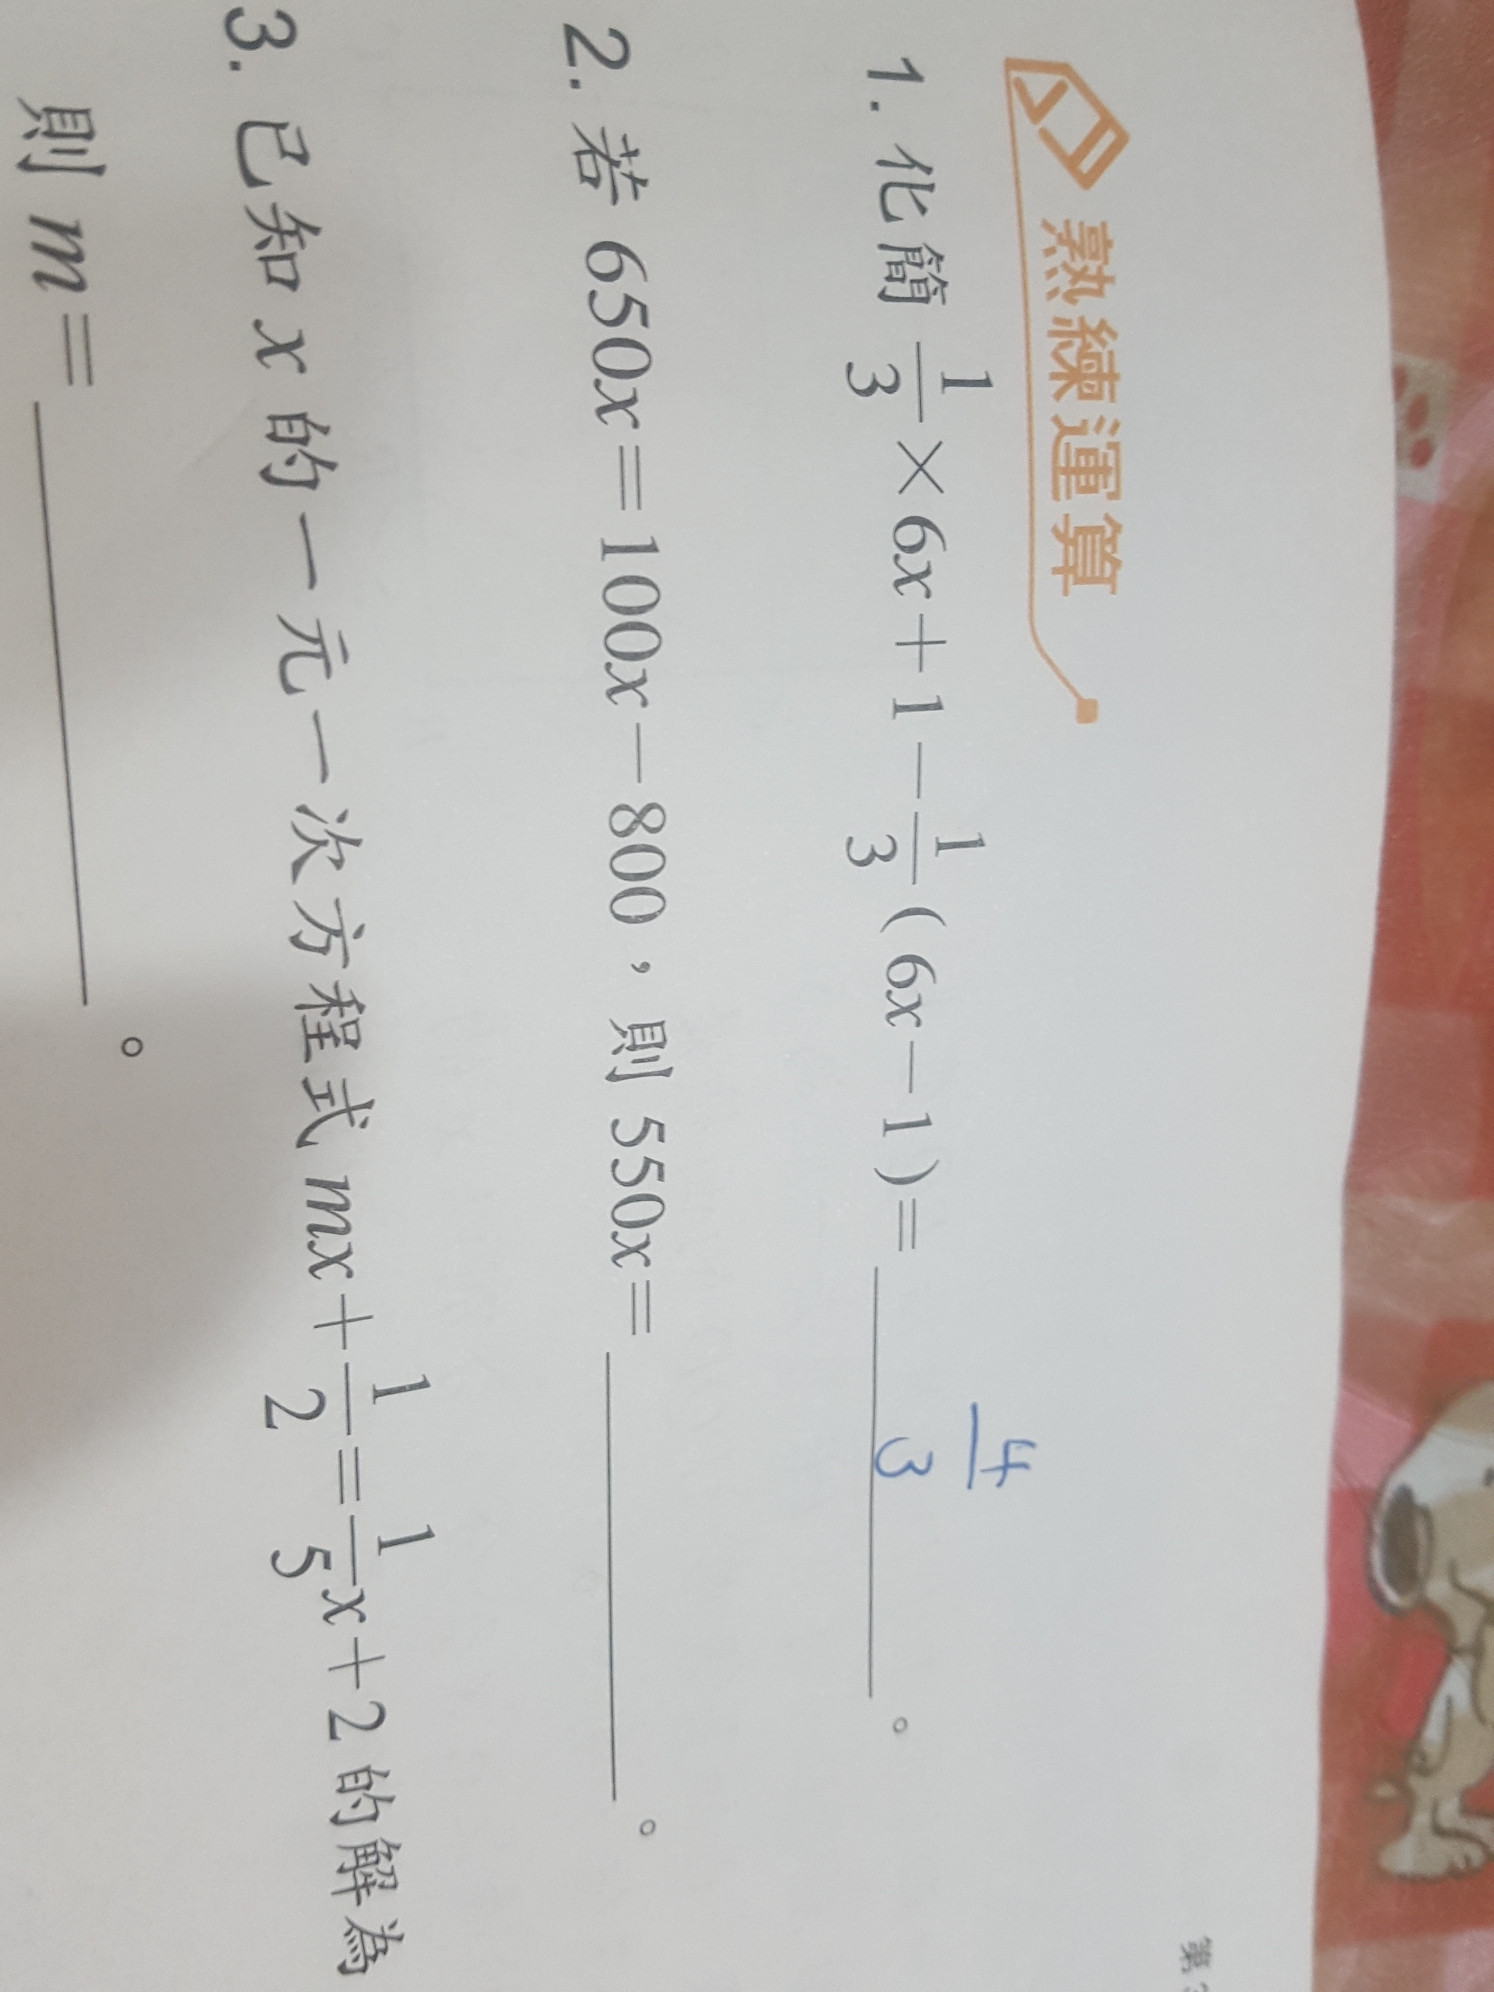 第
熟練運算
1. 化簡 \frac{1}{3}×6x+1-\frac{1}{3}(6x-1)= \frac{4}{3} 。
2. 若 650x=100x-800，則 550x= ______ 。
3. 已知 x 的一元一次方程式 mx+\frac{1}{2}=\frac{1}{5}x+2 的解為
則 m= ______ 。